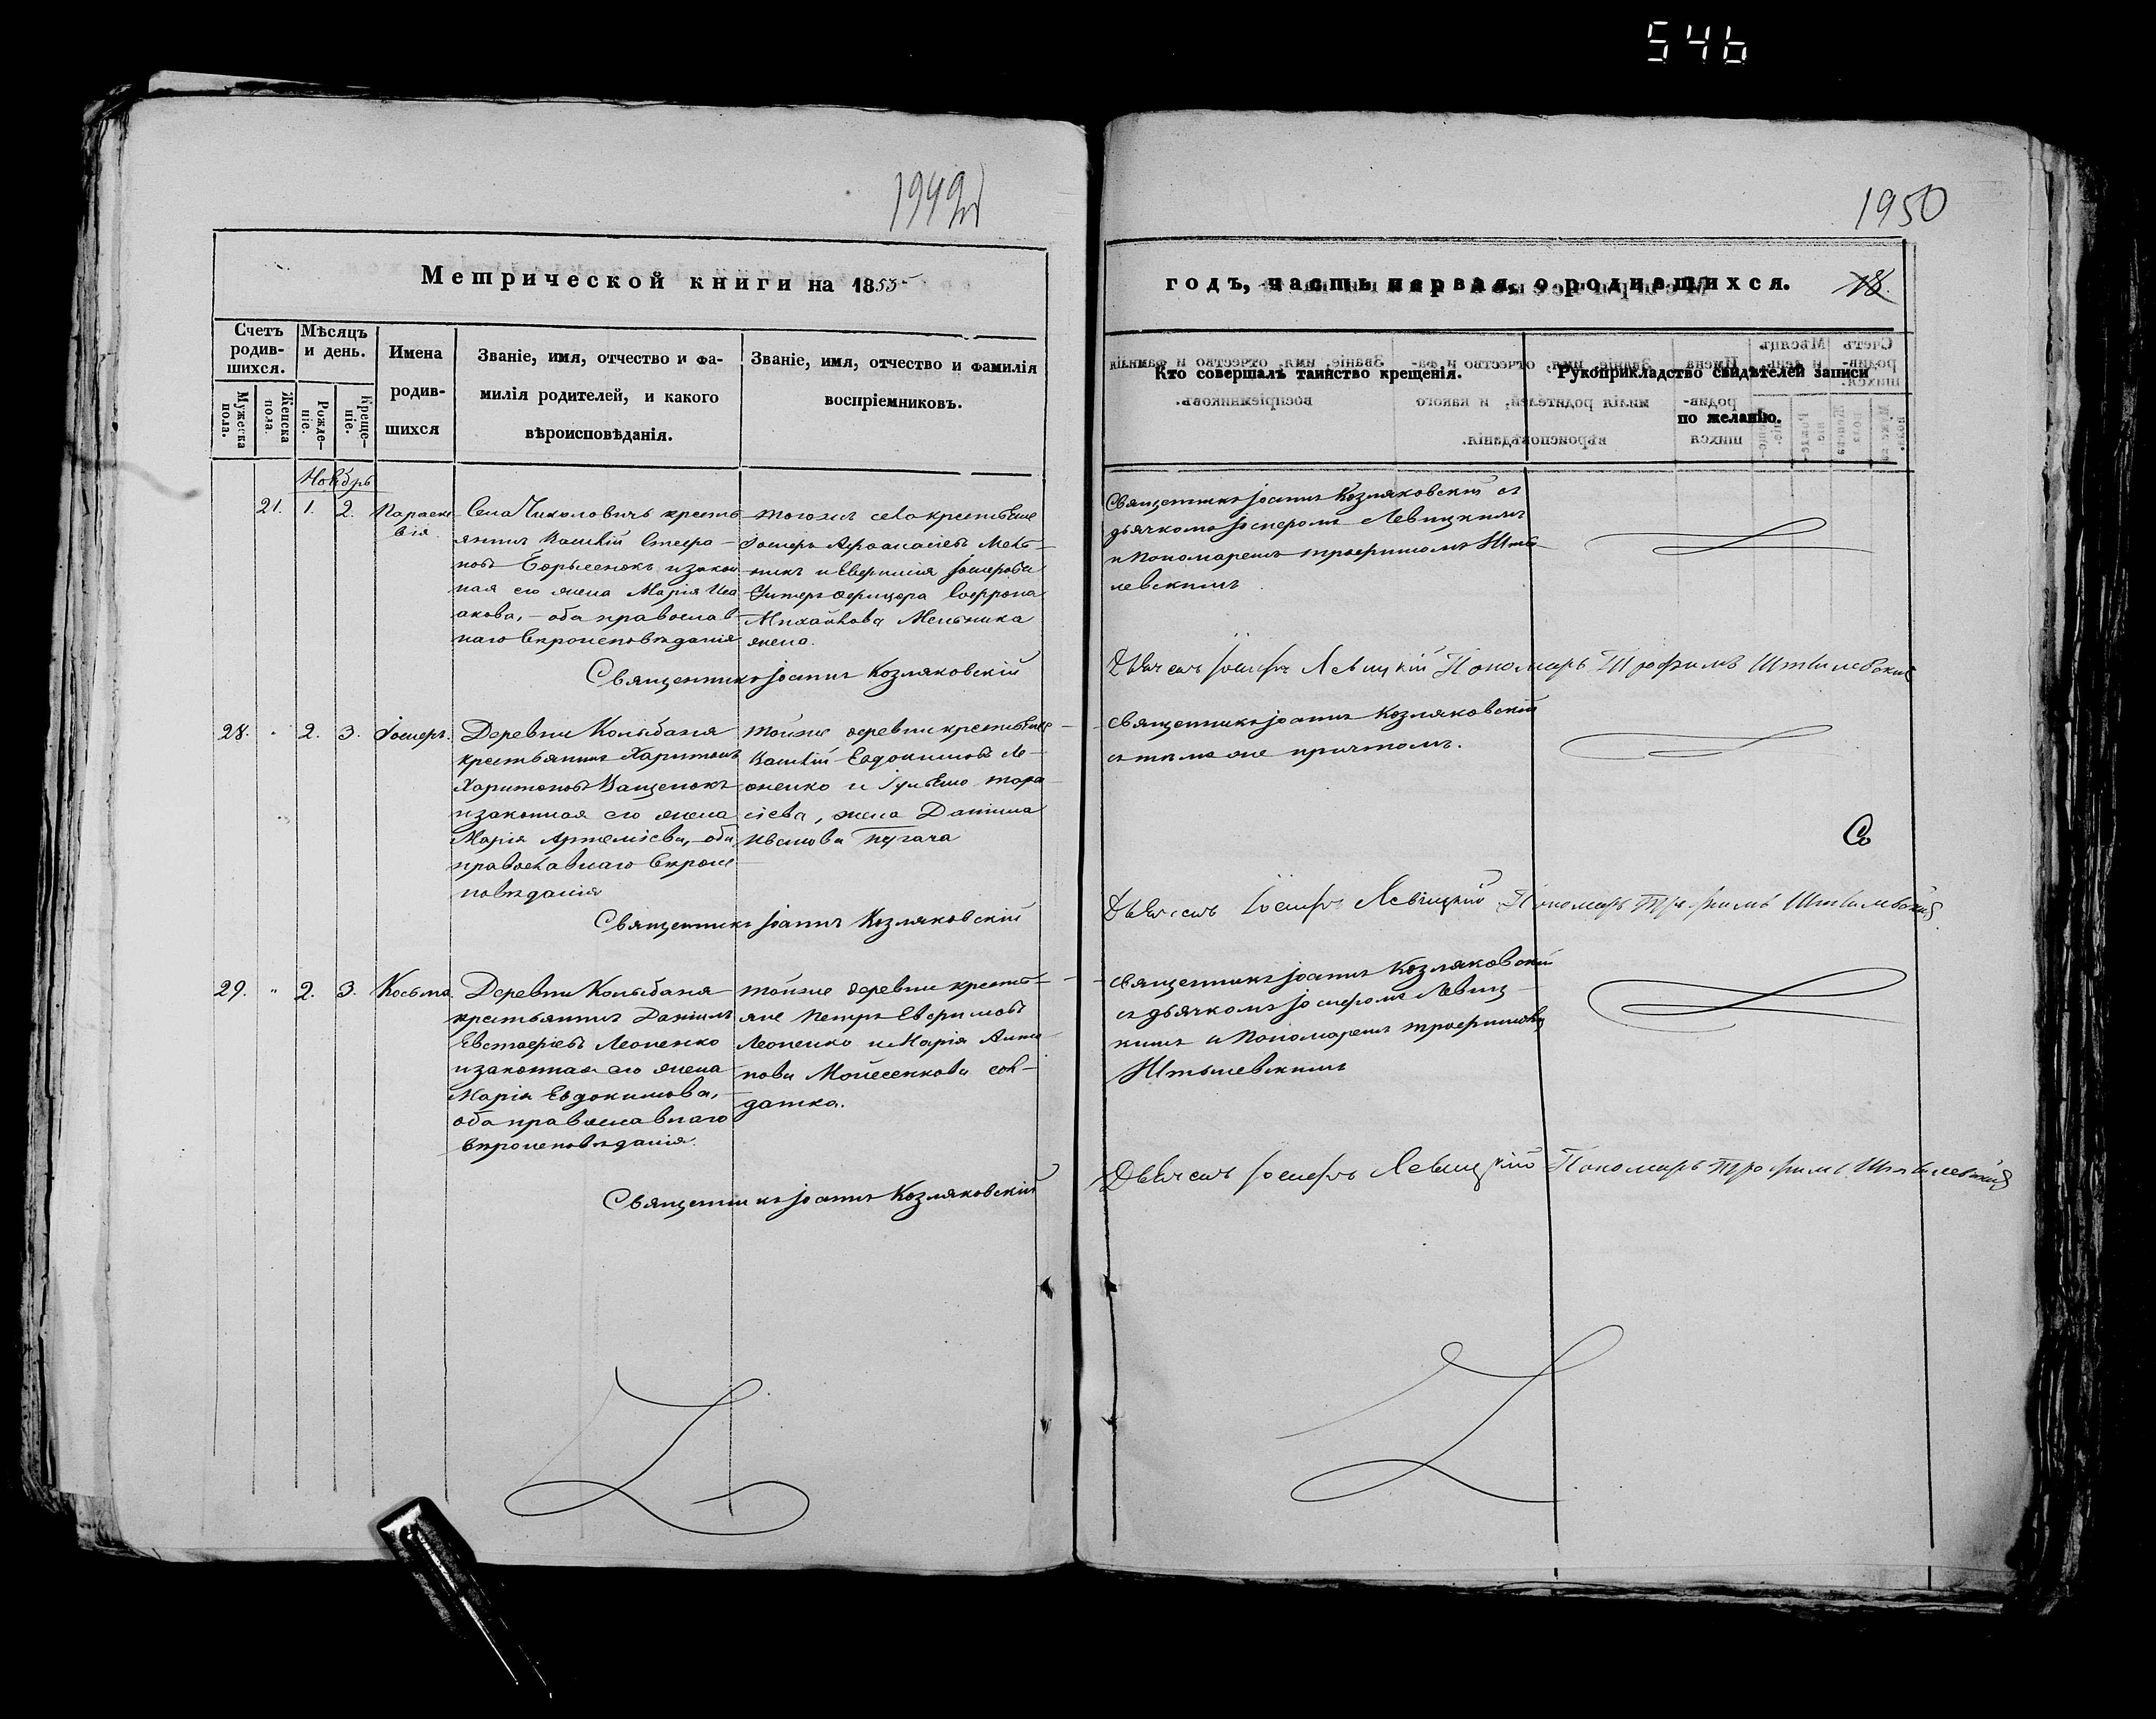 546
1949
1950
Метрической книги на 1853
годъ, часть первая, о родившихся.
18
Счетъ родив-шихся.
Мужеска пола.
Женска пола.
Мѣсяцъ и день.
Рожде-ніе.
Креще-ніе.
Имена родив-шихся
Званіе, имя, отчество и фа-
милія родителей, и какого
вѣроисповѣданія.
Званіе, имя, отчество и фамилія
воспріемниковъ.
Кто совершалъ таинство крещенія.
Рукоприкладство свидѣтелей записи
по желанію.
Ноябрь
21. 1. 2. Параске
вія
Села Чиколовичь кресть
янинъ Василій Стефа-
новъ Борисенокъ и закон
ная его жена Марія Иса
акова, - оба православ
наго вѣроисповѣданія
тогожъ села крестьяне
Іосифъ Афанасіевъ Мель-
никъ и Евфимія Іосифова
Унтеръ Офицера
Михайлова Мельника
жена.
Священникъ Іоаннъ Козляковскій
Священникъ Іоаннъ Козляковскій съ
дьячкомъ Іосифомъ Левицкимъ
и Пономаремъ Трофимомъ
левскимъ
Дьячекъ Іосифъ Левицкій Пономарь Трофимъ
28. " 2. 3. Іосифъ.
Деревни Колыбаня
крестьянинъ Харитонъ
Харитоновъ Ващенокъ
и законная его жена
Марія Артеміева, оба
православнаго вѣроис
повѣданія
тойже деревни крестьяне
Василій Евдокимовъ Ле-
оненко и Іуліанія Тара
сіева, жена Даніила
Иванова Пугача
Священникъ Іоаннъ Козляковскій
Священникъ Іоаннъ Козляковскій
съ тѣмъ же причтомъ.
Дьячекъ Іосифъ Левицкій Пономарь Трофимъ
29. " 2. 3. Косьма
Деревни Колыбаня
крестьянинъ Даніилъ
Евстафіевъ Леоненко
и законная его жена
Марія Евдокимова,
оба православнаго
вѣроисповѣданія.
тойже деревни кресть-
яне Петръ Евфимовъ
Леоненко и Марія Анто
нова Мойсеенкова сол-
датка.
Священникъ Іоаннъ Козляковскій
Священникъ Іоаннъ Козляковскій
съ дьячкомъ Іосифомъ Левиц
кимъ и Пономаремъ Трофимомъ
Дьячекъ Іосифъ Левицкій Пономарь Трофимъ